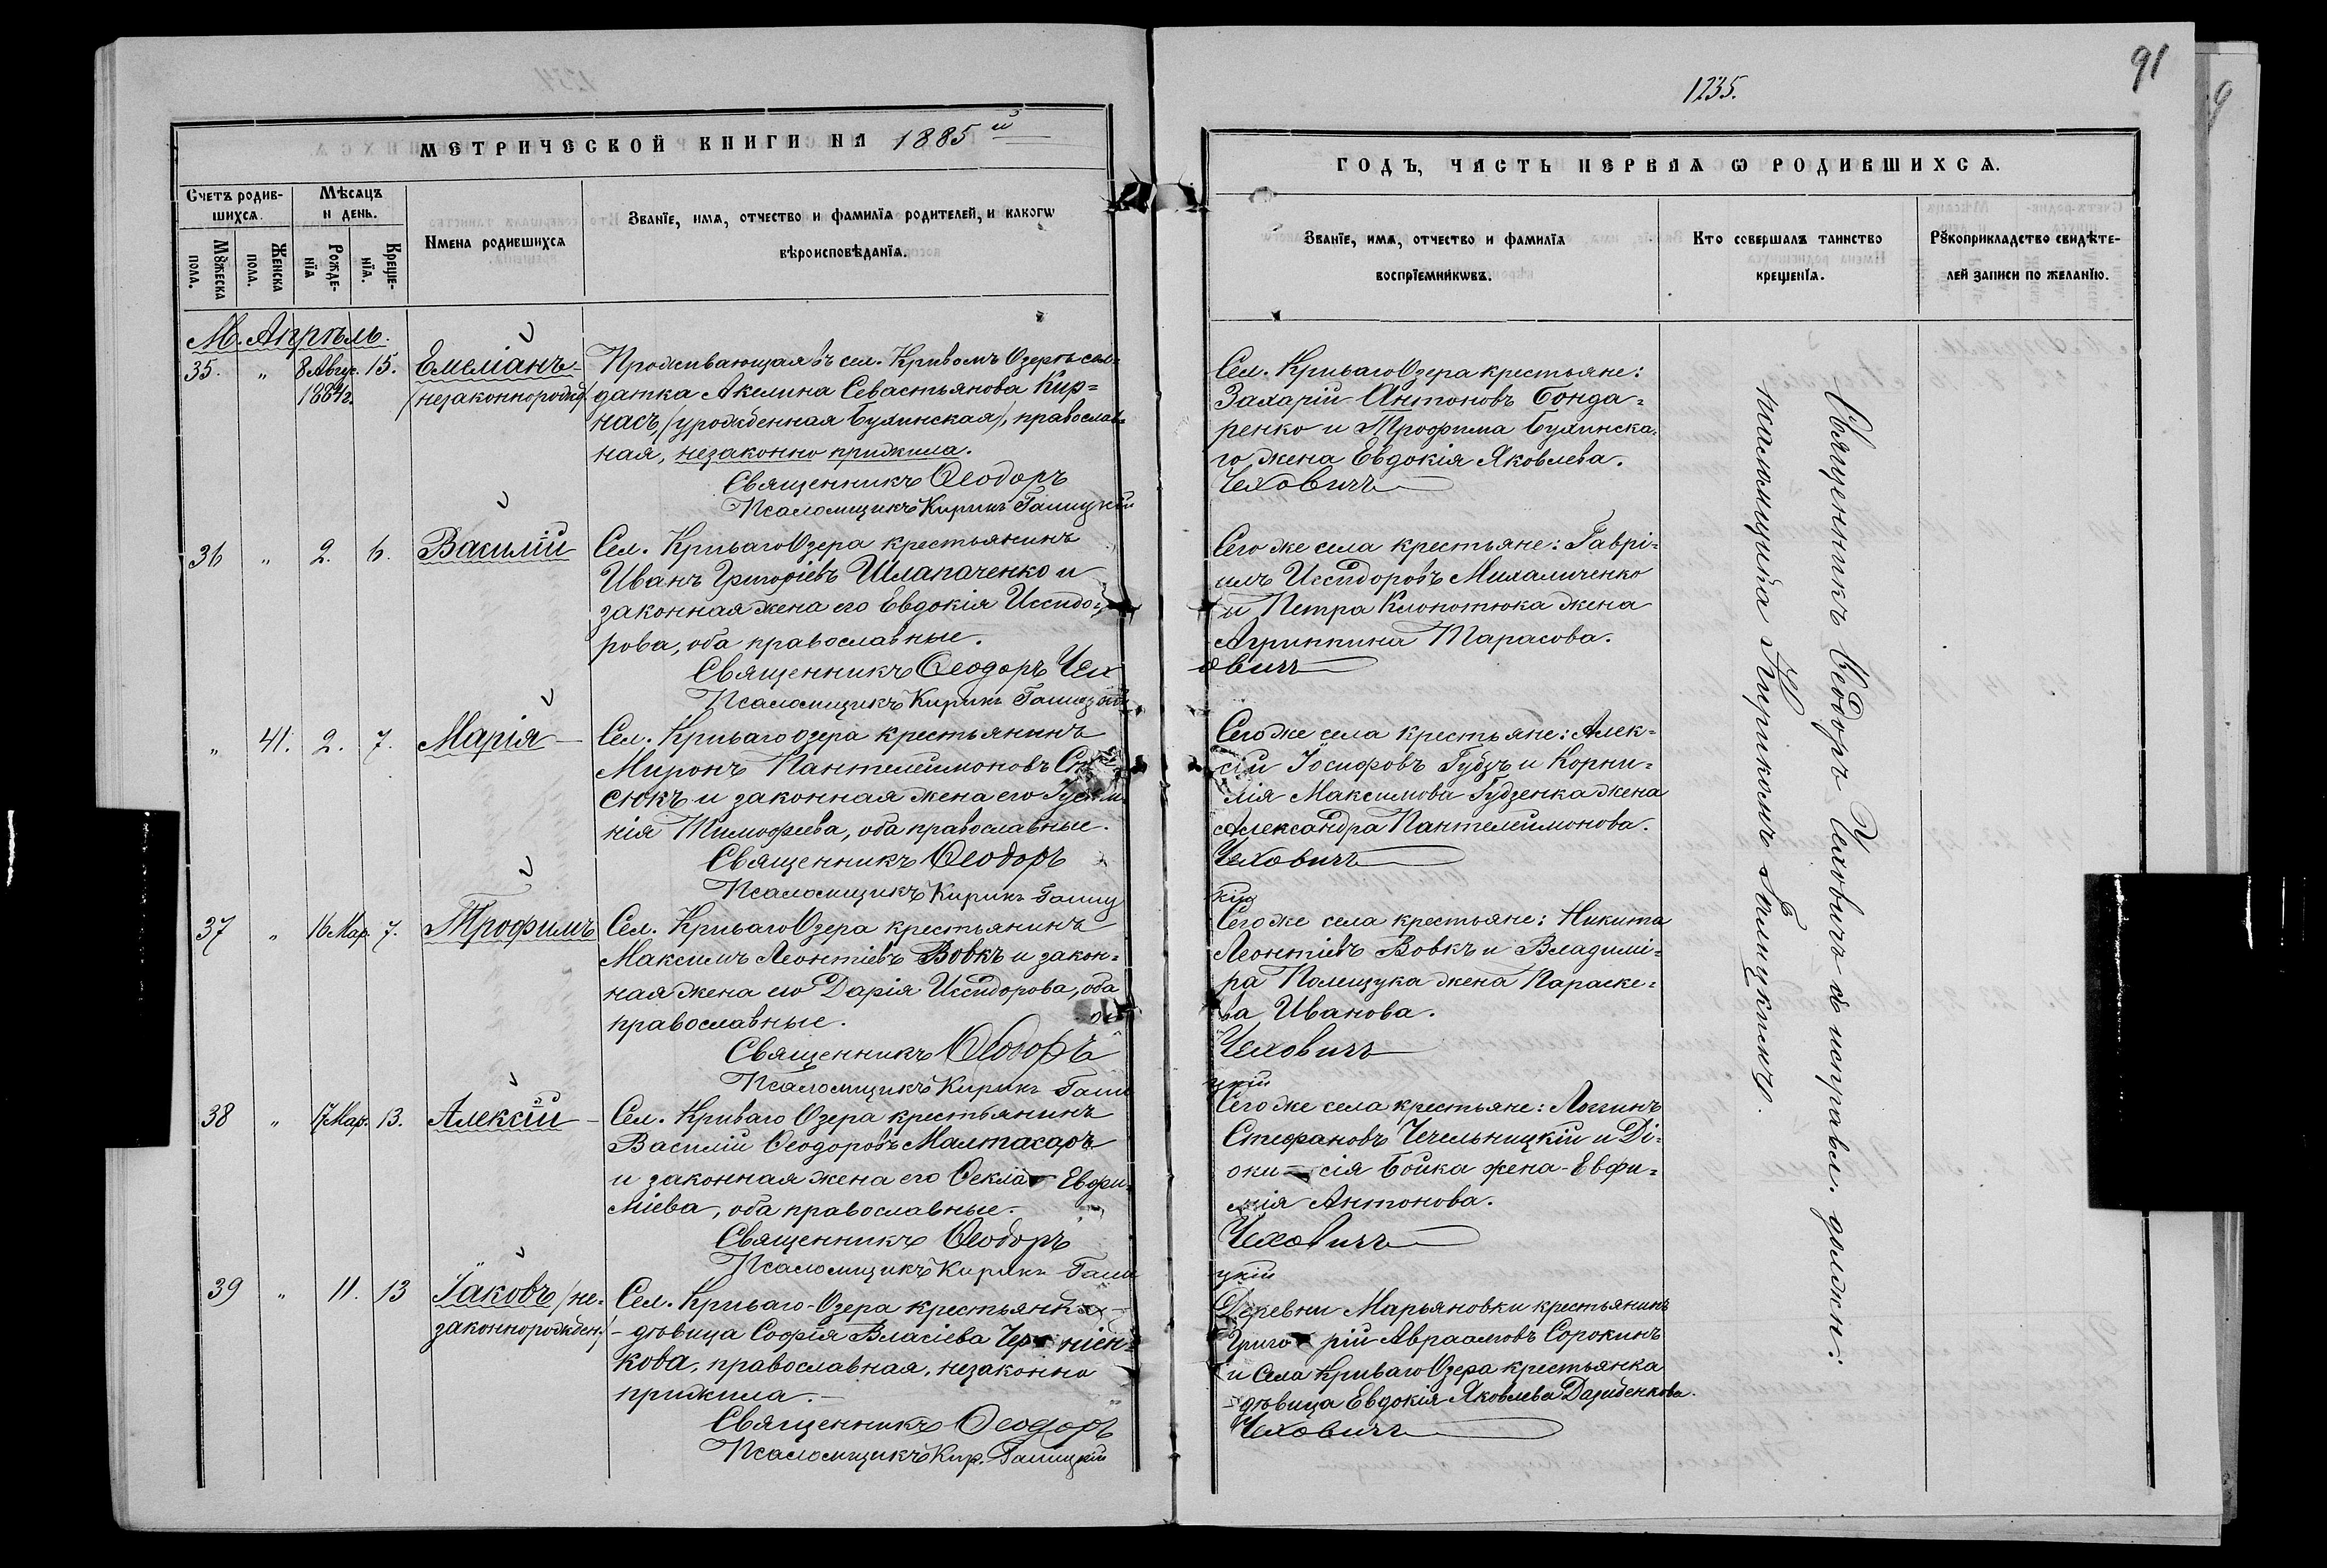 91
1235.
МЕТРИЧЕСКОЙ КНИГИ НА 1885й
Счетъ родив-
шихся.
Мѣсяцъ
и день.
Мꙋжеска
пола.
Женска
пола.
Рожде-
нїя
Креще-
нїя.
Имена родившихся
Званїе, имя, отчество и фамилїя родителей, и какогѡ
вѣроисповѣданїя.
М. Апрѣль.
35. " 8 Авгус. 15. Емеліанъ
1884г. /незаконнорожд/
Проживающая въ сел. Кривомъ Озерѣ сол-
датка Акелина Севастьянова Кир=
насъ, /урожденная Булинская/, православ-
ная, незаконно прижила.
Священникъ Ѳеодоръ
Псаломщикъ Кирикъ Галицкій
36 " 2. 6. Василій
Сел. Криваго Озера крестьянинъ
Иванъ Григоріевъ Шлапаченко и
законная жена его Евдокія Исидо-
рова, оба православные.
Священникъ Ѳеодоръ Чех
Псаломщикъ Кирикъ Галицкій
" 41. 2. 7. Марія
Сел. Криваго озера крестьянинъ
Миронъ Пантелеимоновъ
сюкъ и законная жена его
нія Тимофеева, оба православные.
Священникъ Ѳеодоръ
Псаломщикъ Кирикъ Галиц
37 " 16 Мар. 7. Трофимъ
Сел. Криваго Озера крестьянинъ
Максимъ Леонтіевъ Вовкъ и закон=
ная жена его Дарія Исидорова, оба
православные.
Священникъ Ѳеодоръ
Псаломщикъ Кирикъ Гали
38 " 17 Мар. 13. Алексій
Сел. Криваго Озера крестьянинъ
Василій Ѳеодоровъ Малтасаръ
и законная жена его Ѳекла Евфи-
міева, оба православные.
Священникъ Ѳеодоръ
Псаломщикъ Кирикъ Гали
39 " 11. 13 Іаковъ /не-
законнорожден/
Сел. Криваго-Озера крестьянка
- дѣвица Софія Власіева
кова, православная, незаконно
прижила.
Священникъ Ѳеодоръ
Псаломщикъ Кир. Галицкій
ГОДЪ, ЧАСТЬ ПЕРВАЯ Ѡ РОДИВШИХСЯ.
Званїе, имя, отчество и фамилїя
воспрїемникѡвъ.
Кто совершалъ таинство
крещенїя.
Рꙋкоприкладство свидѣте-
лей записи по желанїю.
Сел. Криваго Озера крестьяне:
Захарій Антоновъ Бонда-
ренко и Трофима Булинска-
го жена Евдокія Яковлева.
Чеховичъ
Сего же села крестьяне: Гаврі-
илъ Исидоровъ Михальченко
и Петра Клопотюка жена
Агриппина Тарасова.
овичъ
Сего же села крестьяне: Алек-
сій Іосифовъ Гудзъ и Корни-
лія Максимова Гудзенка жена
Александра Пантелеимонова.
Чеховичъ
кій
Сего же села крестьяне: Никита
Леонтіевъ Вовкъ и Владимі-
ра Полещука жена Параске-
ва Иванова.
Чеховичъ
цкій
Сего же села крестьяне: Логгинъ
Стефановъ Чечельницкій и Ді-
они-сія Бойка жена - Евфи-
мія Антонова.
Чеховичъ
цкій
Деревни Марьяновки крестьянинъ
Григорій Авраамовъ Сорокинъ
и Села Криваго Озера крестьянка
- дѣвица Евдокія Яковлева Давиденкова.
Чеховичъ
Священникъ Ѳеодоръ Чеховичъ съ исправл. должн:
псаломщика Кирикомъ Галицкимъ.